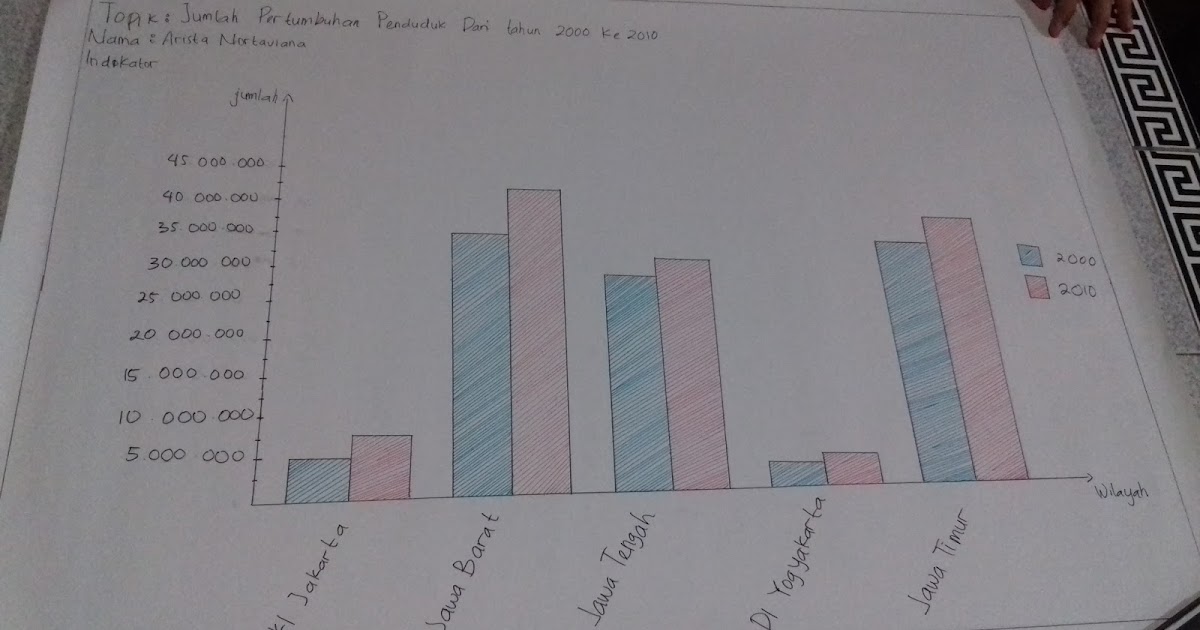 Topik : Jumlah Pertumbuhan Penduduk Dari tahun 2000 ke 2010
Nama : Arista Nortaviana
Indikator
jumlah
45.000.000
40.000.000
35.000.000
30.000.000
25.000.000
20.000.000
15.000.000
10.000.000
5.000.000
2000
2010
Wilayah
KI Jakarta
Jawa Barat
Jawa Tengah
DI Yogyakarta
Jawa Timur